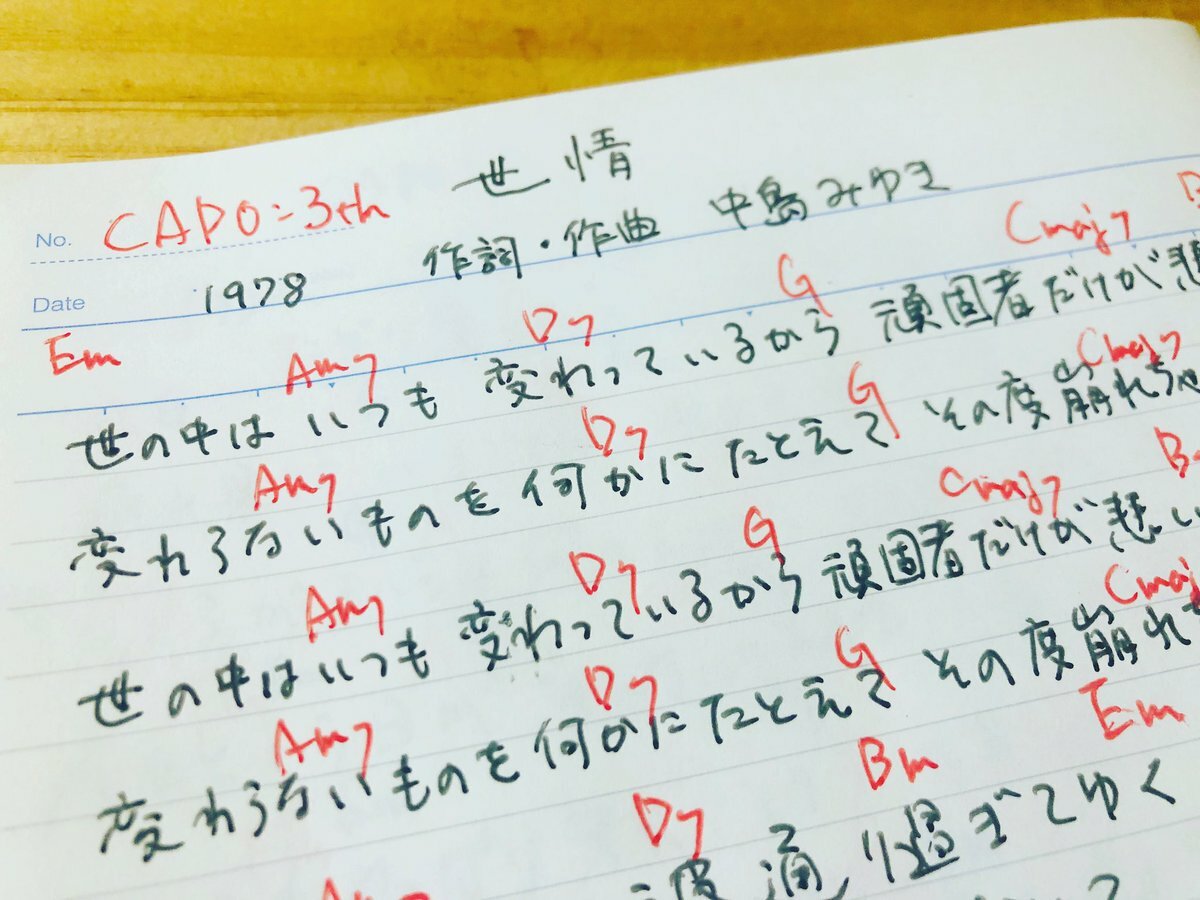 世情
No. CAPO=3th
作詞・作曲 中島みゆき
Date 1978
Em Am7 D7 G Cmaj7
世の中は いつも 変わっているから 頑固者だけが悲
Am7 D7 G Cmaj7
変わらないものを 何かに たとえて その度崩れちゃ
Am7 D7 G Cmaj7
世の中はいつも 変わっているから 頑固者だけが悲い
Am7 D7 G Cmaj
変わらないものを 何かに たとえて その度崩れ
D7 Bm Em
通り過ぎてゆく